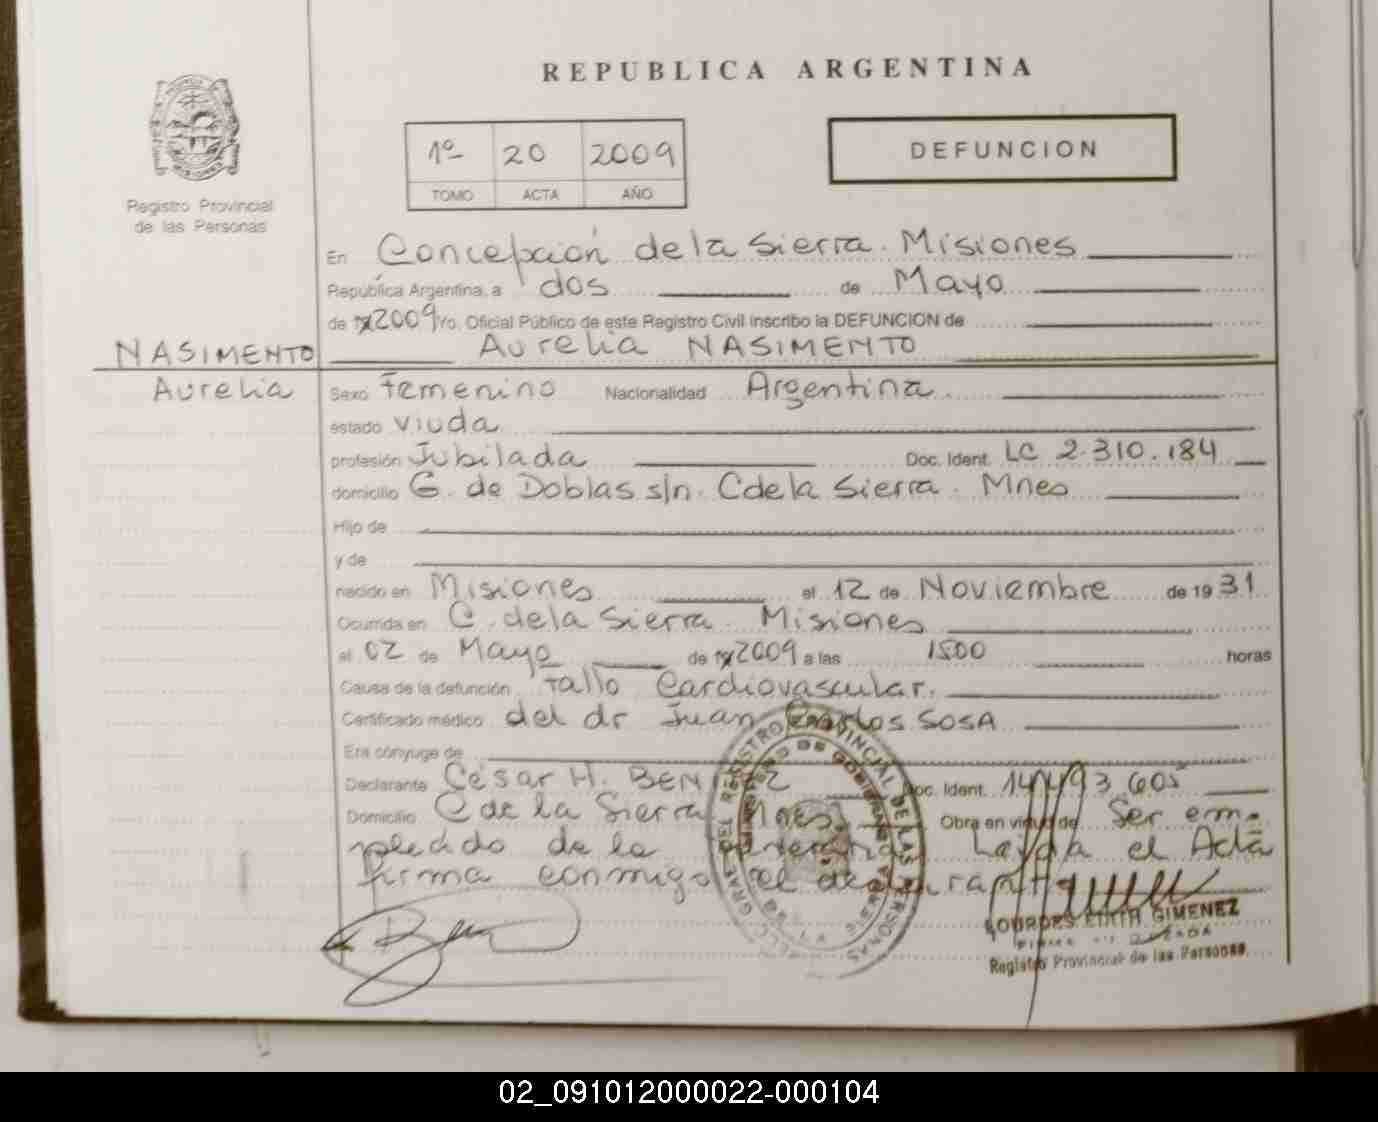 REPUBLICA ARGENTINA
Registro Provincial
de las Personas
1º 20 2009
TOMO ACTA AÑO
DEFUNCION
En Concepción de la Sierra. Misiones
República Argentina, a dos de Mayo
de 2009 Yo, Oficial Público de este Registro Civil inscribo la DEFUNCION de
NASIMENTO Aurelia NASIMENTO
Aurelia Sexo Femenino Nacionalidad Argentina.
estado viuda
profesión Jubilada Doc. Ident. LC 2.310.184
domicilio G. de Doblas s/n. C de la Sierra. Mnes
Hijo de
y de
nacido en Misiones el 12 de Noviembre de 1931
Ocurrida en C. de la Sierra. Misiones
el 02 de Mayo de 2009 a las 1500 horas
Causa de la defunción Fallo Cardiovascular.
Certificado médico del dr Juan Carlos SOSA
Era cónyuge de
Declarante César H. Doc. Ident.
Domicilio C de la Sierra Mnes. Obra en virtud de Ser em-
pleado de la Leída el Acta
firma conmigo el declarante
LOURDES EDITH GIMENEZ
Registro Provincial de las Personas
02_091012000022-000104